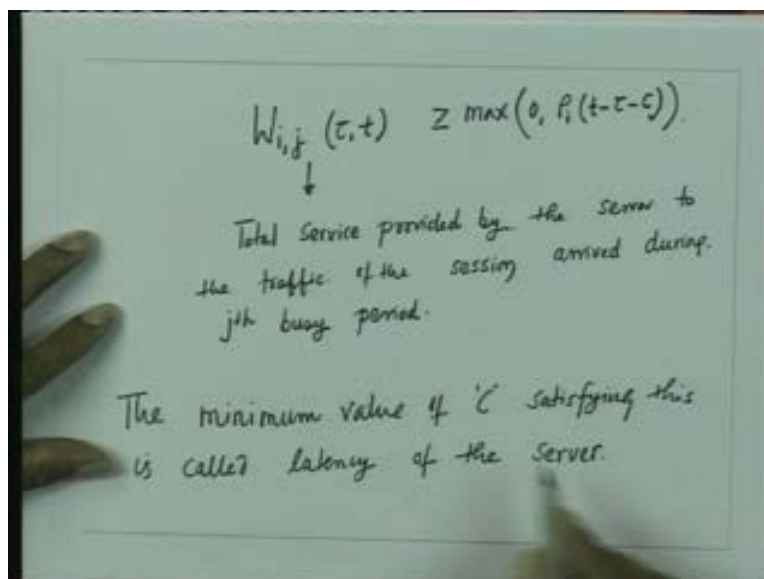 W_{i,j} (τ,t) ≥ max(0, ρ_i (t-τ-C)).
↓
Total service provided by the server to
the traffic of the session arrived during
jth busy period.
The minimum value of 'C' satisfying this
is called latency of the server.